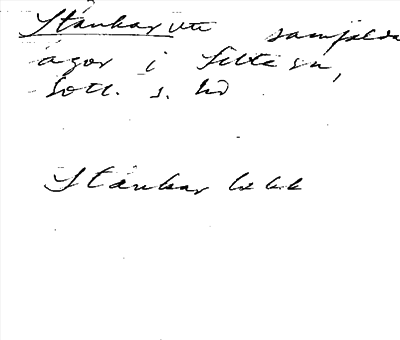 Stänkar vn samfälda
ägor i Silte sn,
Gotl. s. hd
Stänkar